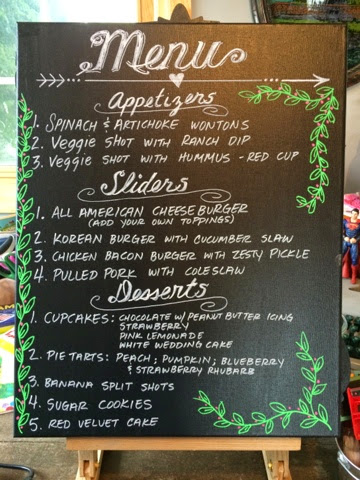 Menu
Appetizers
1. SPINACH & ARTICHOKE WONTONS
2. Veggie SHOT WITH RANCH DIP
3. Veggie SHOT WITH HUMMUS - RED CUP
Sliders
1. ALL AMERICAN CHEESEBURGER
(ADD YOUR OWN TOPPINGS)
2. KOREAN BURGER WITH CUCUMBER SLAW
3. CHICKEN BACON BURGER WITH ZESTY PICKLE
4. PULLED PORK WITH COLESLAW
Desserts
1. CUPCAKES: CHOCOLATE W/PEANUT BUTTER ICING
STRAWBERRY
PINK LEMONADE
WHITE WEDDING CAKE
2. PIE TARTS: PEACH; PUMPKIN; BLUEBERRY
& STRAWBERRY RHUBARB
3. BANANA SPLIT SHOTS
4. SUGAR COOKIES
5. RED VELVET CAKE